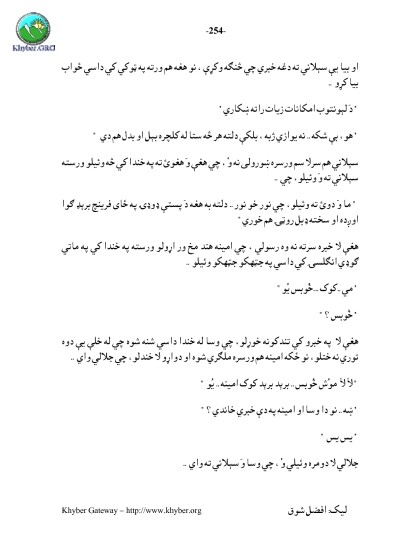 -254-
Khyber.ORG
او بيا يې سېلاني ته دغه خبرې چي څنګه وکړې ، نو هغه هم ورته په ټوکي کي داسي ځواب
بيا کړو ..
" دَ لېونتوب امکانات زيات راته ښکاري "
" هو ، بې شکه .. نه يوازي ژبه ، بلکې دلته هر څه ستا له کلچره بېل او بدل هم دي "
سېلاني هم سر لا سم ورسره ښورولی نه وُ ، چي هغې وَ هغوئ ته په خندا کي څه وئيلو ورسته
سېلاني ته وَ وئيلو ، چي ..
" ما وَ دوئ ته وئيلو ، چي نور خو نور .. دلته به هغه دَ پستې ډوډۍ په ځای فرينچ برېډ ګوا
اوږده او سخته ډبل روټۍ هم خوري "
هغې لا خبره سرته نه وه رسولې ، چي امينه هند مخ ور اړولو ورسته په خندا کي په ماتې
ګوډې انګلسۍ کي داسي په جټهکو جټهکو وئيلو ..
" مې .. کوک .. خُوبس يُو "
" خُوبس ؟ "
هغې لا په خبرو کي تندکونه خوړلو ، چي وسا له خندا داسي شنه شوه چي له خلې يې دوه
نورې نه ختلو ، نو ځکه امينه هم ورسره ملګرې شوه او دواړو لا خندلو ، چي جلالي واي ..
" لاَ لاَ مو'ش خُوبس .. برېډ برېډ کوک امينه .. يُو "
" ښه .. نو دا وسا او امينه په دې خبرې خاندي ؟ "
" يس يس "
جلالي لا دومره وئيلي وُ ، چي وسا وَ سېلاني ته واي ..
ليک: افضل شوق
Khyber Gateway – http://www.khyber.org